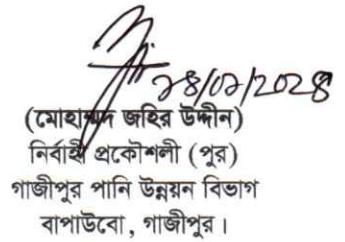 ২৪/০৭/২০২৪
(মোহাম্মদ জহির উদ্দীন)
নির্বাহী প্রকৌশলী (পুর)
গাজীপুর পানি উন্নয়ন বিভাগ
বাপাউবো, গাজীপুর।